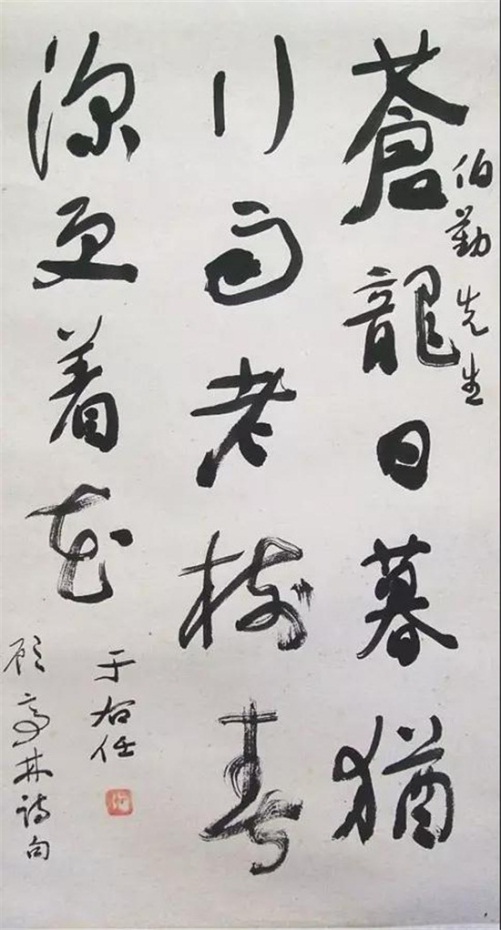 蒼龍日暮猶
行雨老樹春
深更着花
伯勤先生
于右任
顧亭林詩句